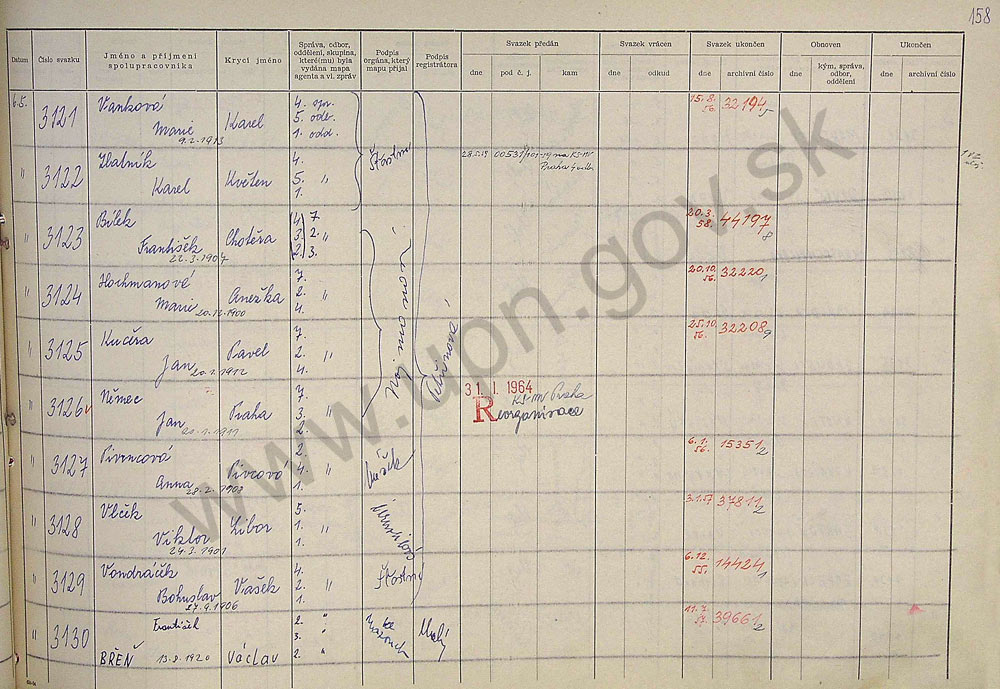 158
Datum
Číslo svazku
Jméno a příjmení
spolupracovníka
Krycí jméno
Správa, odbor,
oddělení, skupina,
které(mu) byla
vydána mapa
agenta a vl. zpráv
Podpis
orgána, který
mapu přijal
Podpis
registrátora
Svazek předán
dne
pod č. j.
kam
Svazek vrácen
dne
odkud
Svazek ukončen
dne
archivní číslo
Obnoven
dne
kým, správa,
odbor,
oddělení
Ukončen
dne
archivní číslo
6.5. 3121 Vanková
Marie
9.2.1913
Karel
4. spr.
5. odb.
1. odd.
15.8.
56. 32194
5
" 3122
Karel
Květen
4.
5. "
1.
Šťastný
28.5.59
Praha
" 3123 Bílek
František
22.3.1907
Chotěra
4. 7
3. 2. "
2. 3.
20.3.
58. 44197
8
" 3124 Hochmanové
Marie
20.12.1900
Anežka
7.
2. "
4.
20.10.
56. 32220
1
" 3125 Kudra
Jan
20.1.1912
Pavel
7.
2. "
4.
25.10.
56. 32208
9
" 3126 Němec
Jan
Praha
7.
3. "
2.
31. I. 1964
KS-MV Praha
Reorganisace
" 3127 Pivencová
Anna
28.2.1903
Pivcová
2.
4. "
1.
6.1.
56. 15351
2
" 3128 Vlček
Viktor
24.3.1901
Libor
5.
1. "
1.
3.1.57 37811
2
" 3129 Vondráček
Bohuslav
27.9.1906
Vašek
4.
2. "
1.
Šťastný
6.12.
55. 14424
1
" 3130 František
BŘEŇ 13.9.1920
Václav
2. "
3. "
2. "
Malý
11.7.
57. 39661
2
www.upn.gov.sk